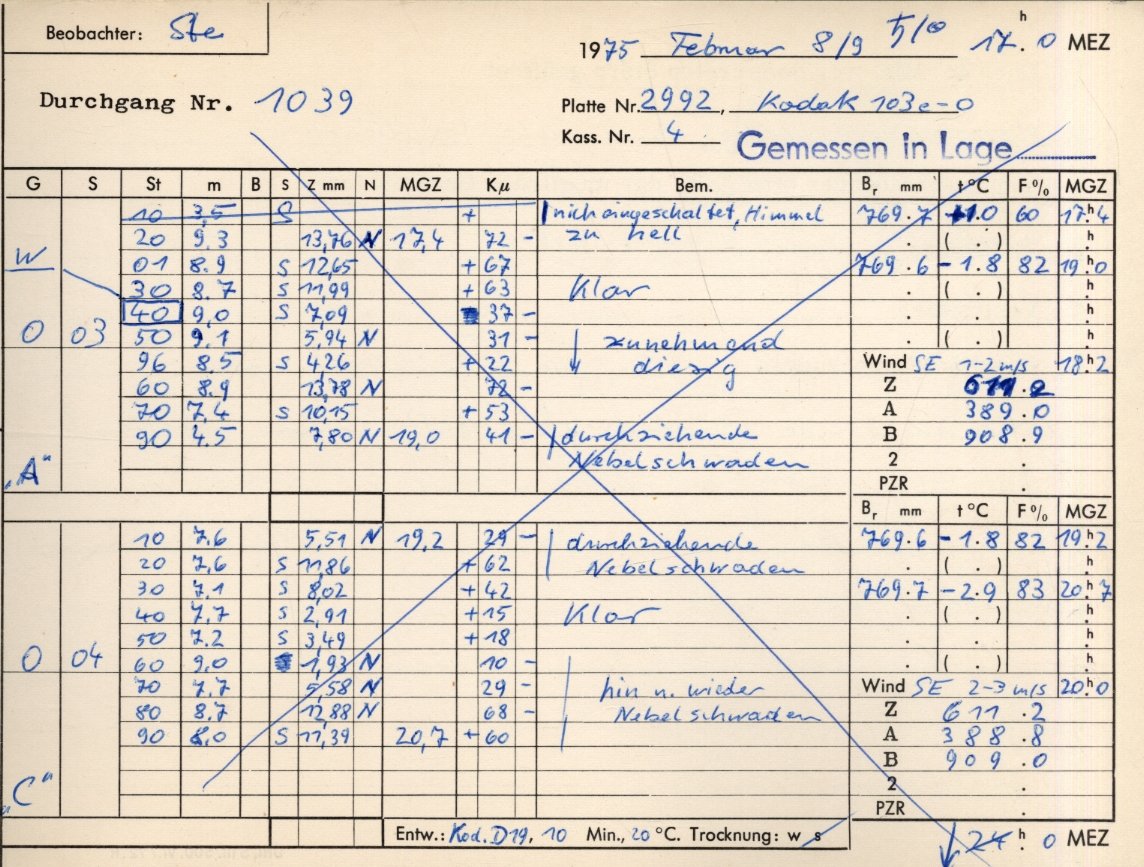 Beobachter: Ste
1975 Februar 8/9 5/0 17.h 0 MEZ
Durchgang Nr. 1039
Platte Nr. 2992, Kodak 103e-0
Kass. Nr. 4
Gemessen in Lage
G S St m B S Z mm N MGZ Kμ Bem. Br mm t°C F% MGZ
10 3,5 S + nich eingeschaltet, Himmel 769.7 +1.0 60 17.h4
20 9.3 13,76 N 17,4 72 - zu hell ( . ) h
W 01 8.9 S 12,65 + 67 769.6 -1.8 82 19.h0
30 8.7 S 11,99 + 63 Klar ( . ) h
40 9,0 S 7,09 37 - . h
0 03 50 9,1 5,94 N 31 - zunehmend ( . ) h
96 8.5 S 4,26 + 22 diesig Wind SE 1-2 m/s 18.h2
60 8.9 13,78 N 72 - Z 611.2
70 7,4 S 10,15 + 53 A 389.0
90 4.5 7,80 N 19,0 41 - durchziehende B 908.9
Nebelschwaden 2 .
„A“ PZR .
Br mm t°C F% MGZ
10 7.6 5,51 N 19,2 29 - durchziehende 769.6 -1.8 82 19.h2
20 7,6 S 11,86 + 62 Nebelschwaden . ( . ) h
30 7.1 S 8,02 + 42 769.7 -2.9 83 20.h7
40 7,7 S 2,91 + 15 Klar . ( . ) h
50 7.2 S 3,49 + 18 . . h
0 04 60 9,0 1,93 N 10 - . ( . ) h
70 7.7 5,58 N 29 - hin u. wieder Wind SE 2-3 m/s 20.h0
80 8.7 12,88 N 68 - Nebelschwaden Z 611.2
90 8,0 S 11,39 20,7 + 60 A 388.8
B 909.0
„C“ 2 .
PZR .
Entw.: Kod. D19, 10 Min., 20 °C. Trocknung: w s 24 h 0 MEZ